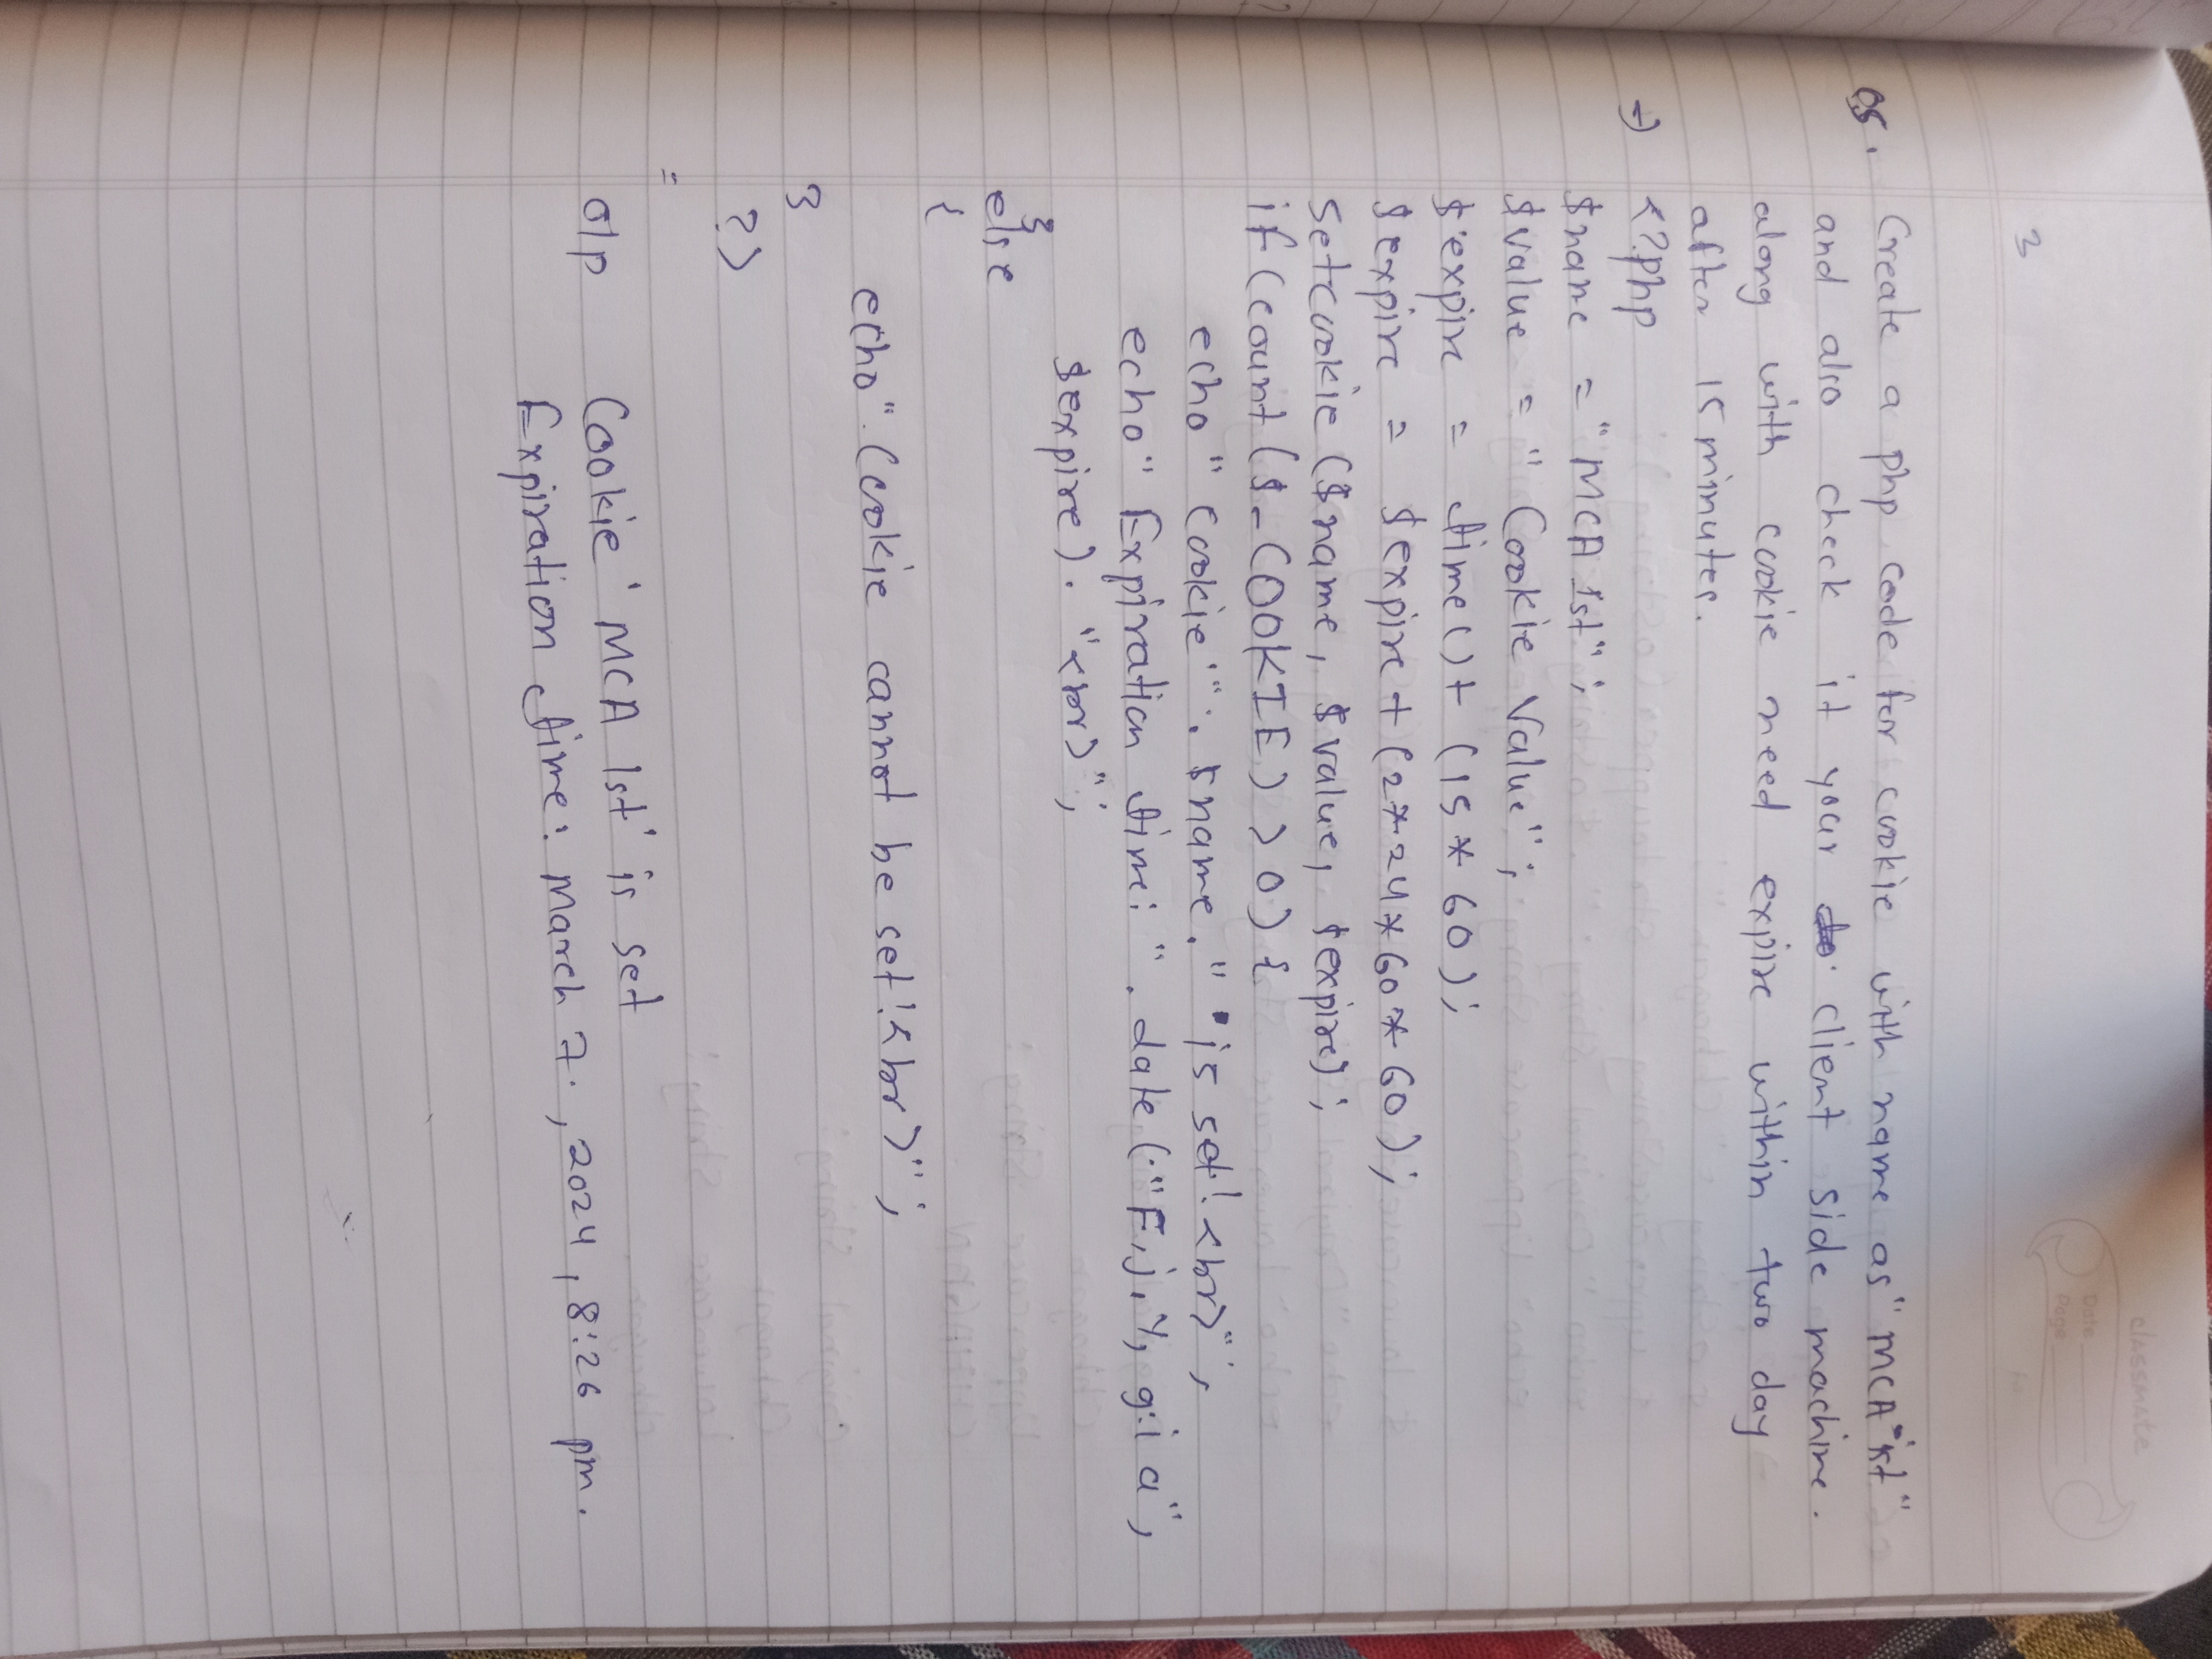 classmate
Date
Page
3
Q5. Create a php code for cookie with name as "MCA 1st"
and also check it your client side machine.
along with cookie need expire within two day
after 15 minutes.
→ <?php
$name = "MCA 1st";
$value = "Cookie Value";
$expire = time()+ (15*60);
$expire = $expire + (2*24*60*60);
setcookie ($name, $value, $expire);
if (count ($_COOKIE) > 0) {
echo "cookie '". $name. "' is set! <br>";
echo "Expiration time: ". date ("F, j, Y, g:i a",
$expire). "<br>";
}
else
{
echo "Cookie cannot be set!<br>";
}
?>
=
o/p Cookie 'MCA 1st' is set
Expiration time: March 7, 2024, 8:26 pm.